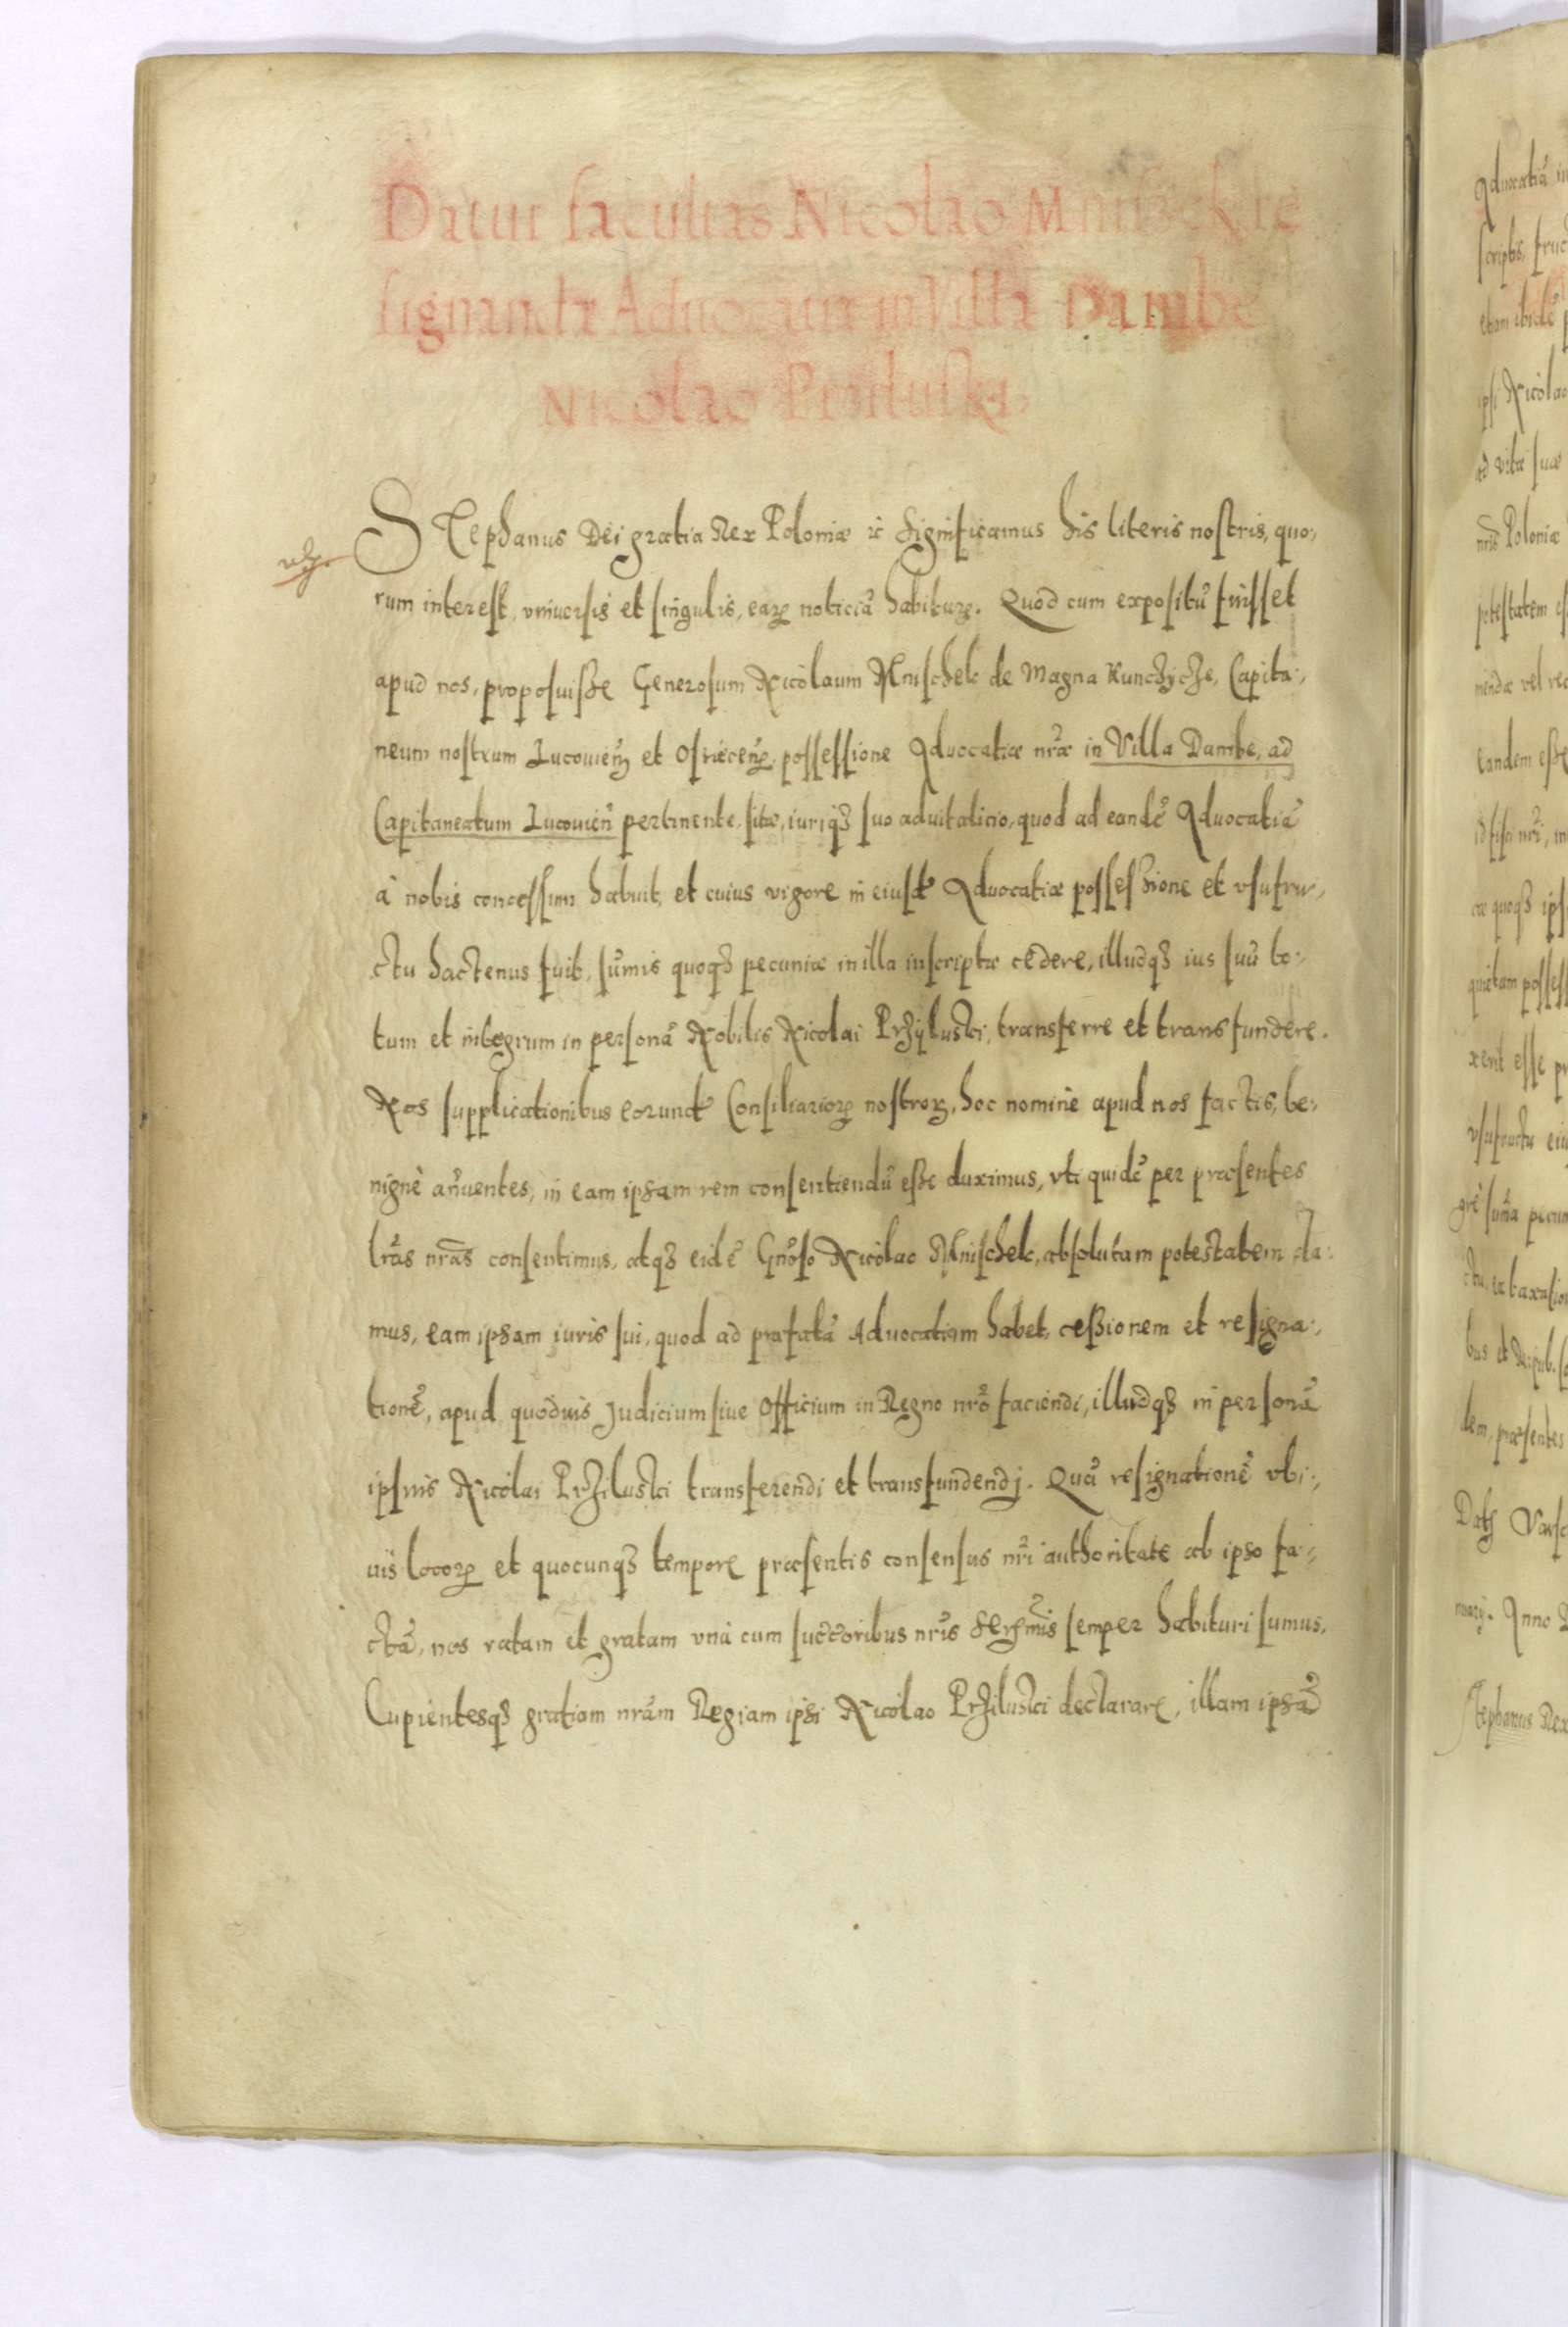 Datur facultas Nicolao Mnisćek re
signandæ Advocatiæ in Villa Dambe
Nicolao Priluski.
Stephanus Dei gratia Rex Poloniæ ec Significamus his literis nostris, quo,
rum interest, vniuersis et singulis, earꝝ noticiā habiturꝭ. Quod cum expositū fuisset
apud nos, proposuisse Generosum Nicolaum Mnischek de Magna Kunczycze, Capita,,
neum nostrum Lucouien̄ et Osviecen̄, possessione Aduocatiæ nr̄æ in Villa Dambe, ad
Capitaneatum Lucouien̄ pertinente, sitæ, iuriqȝ suo aduitalicio, quod ad eandē Aduocatiā
à nobis concessum habuit, et cuius vigore in eiusd Aduocatiæ possessione et vsufru,,
ctu hactenus fuit, sūmis quoqȝ pecuniæ in illa inscriptæ cedere, illudqȝ ius suū to,,
tum et integrum in personā Nobilis Nicolai Przyluski, transferre et transfundere.
Nos supplicationibus eorund Consiliarioꝝ nostroꝝ, hoc nomine apud nos factis, be,,
nignè an̄uentes, in eam ipsam rem consentiendū esse duximus, vti quidē per præsentes
lr̄as nr̄as consentimus, atqȝ eidē Gn̄oso Nicolao Mnischek, absolutam potestatem da,,
mus, eam ipsam iuris sui, quod ad præfatā Aduocatiam habet, cessionem et resigna,,
tionē, apud quoduis Judicium siue Officium in Regno nr̄o faciendi, illudqȝ in personā
ipsius Nicolai Prziluski transferendi et transfundendj. Quā resignationē vbi,,
uis locoꝝ et quocunqȝ tempore præsentis consensus nr̄i authoritate ab ipso fa,,
ctā, nos ratam et gratam vnà cum succ̄oribus nr̄is Serm̄is semper habituri sumus.
Cupientesqȝ gratiam nr̄am Regiam ipsi Nicolao Prziluski declarare, illam ipsā
Aduocatiā in
ipsi Nicolao
ad vitæ suæ
nr̄is Poloniæ
potestatem
eandem esse
xerit esse
vsufructu
Anno
Stephanus Rex